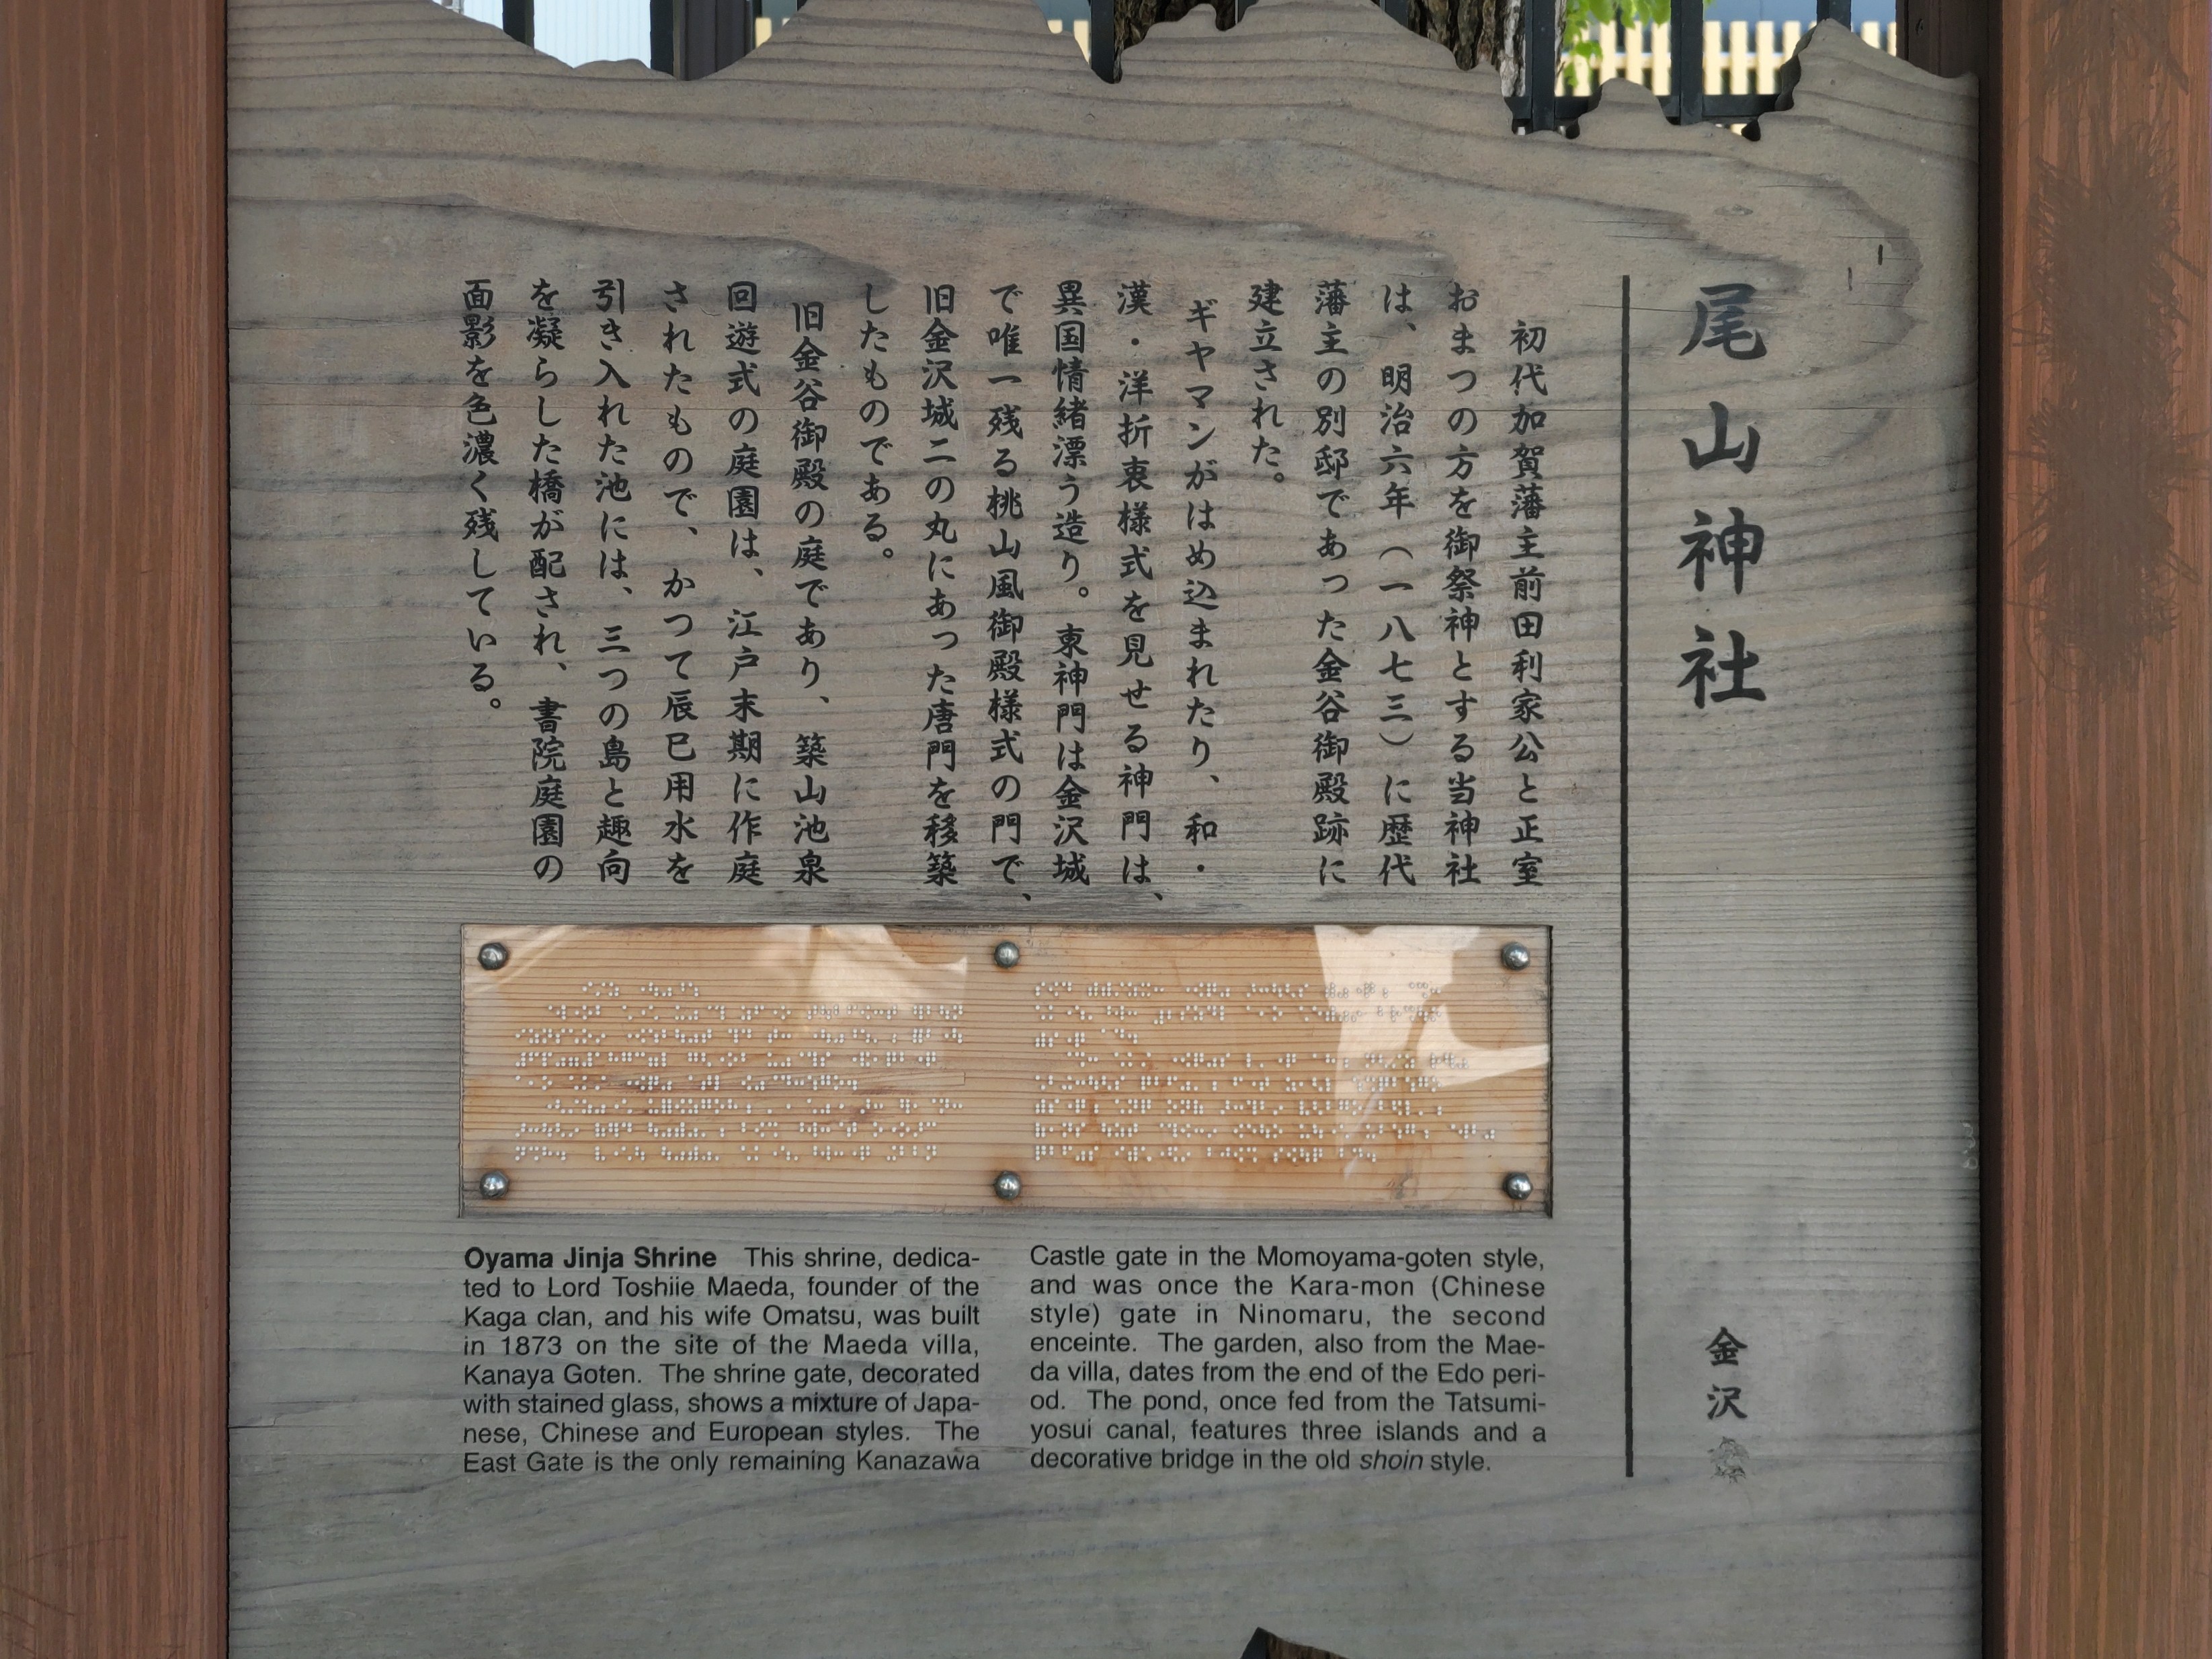 尾山神社
金沢
初代加賀藩主前田利家公と正室
おまつの方を御祭神とする当神社
は、明治六年（一八七三）に歴代
藩主の別邸であった金谷御殿跡に
建立された。
ギヤマンがはめ込まれたり、和・
漢・洋折衷様式を見せる神門は、
異国情緒漂う造り。東神門は金沢城
で唯一残る桃山風御殿様式の門で、
旧金沢城二の丸にあった唐門を移築
したものである。
旧金谷御殿の庭であり、築山池泉
回遊式の庭園は、江戸末期に作庭
されたもので、かつて辰巳用水を
引き入れた池には、三つの島と趣向
を凝らした橋が配され、書院庭園の
面影を色濃く残している。
Oyama Jinja Shrine This shrine, dedica-
ted to Lord Toshiie Maeda, founder of the
Kaga clan, and his wife Omatsu, was built
in 1873 on the site of the Maeda villa,
Kanaya Goten. The shrine gate, decorated
with stained glass, shows a mixture of Japa-
nese, Chinese and European styles. The
East Gate is the only remaining Kanazawa
Castle gate in the Momoyama-goten style,
and was once the Kara-mon (Chinese
style) gate in Ninomaru, the second
enceinte. The garden, also from the Mae-
da villa, dates from the end of the Edo peri-
od. The pond, once fed from the Tatsumi-
yosui canal, features three islands and a
decorative bridge in the old shoin style.